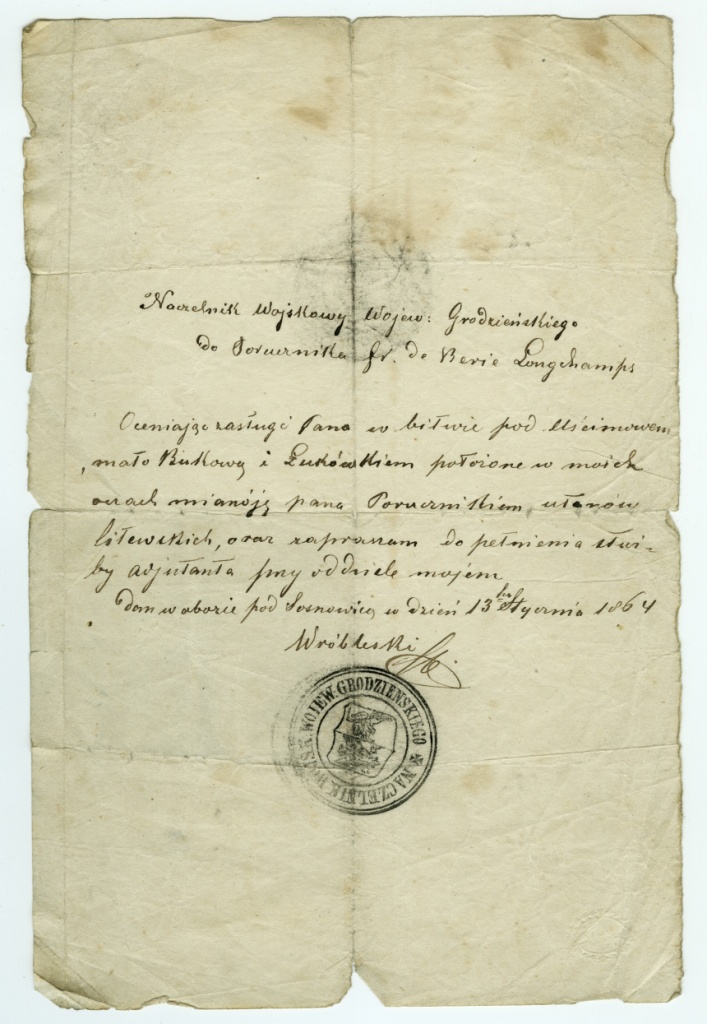 Naczelnik Wojskowy Wojew: Grodzieńskiego
do Porucznika fr. de Berie Longchamps
Oceniając zasługi Pana w bitwie pod Uścimowem,
, mało Bukową i Łukówkiem położone w moich
oczach mianóję pana Porucznikiem ułanów
litewskich, oraz zapraszam do pełnienia słuz-
by adjutanta przy oddziele mojem
Dan w obozie pód Sosnowicą w dzień 13 Stycznia 1864
Wróbleski
NACZELNIK WOJSK. WOJEW. GRODZIENSKIEGO